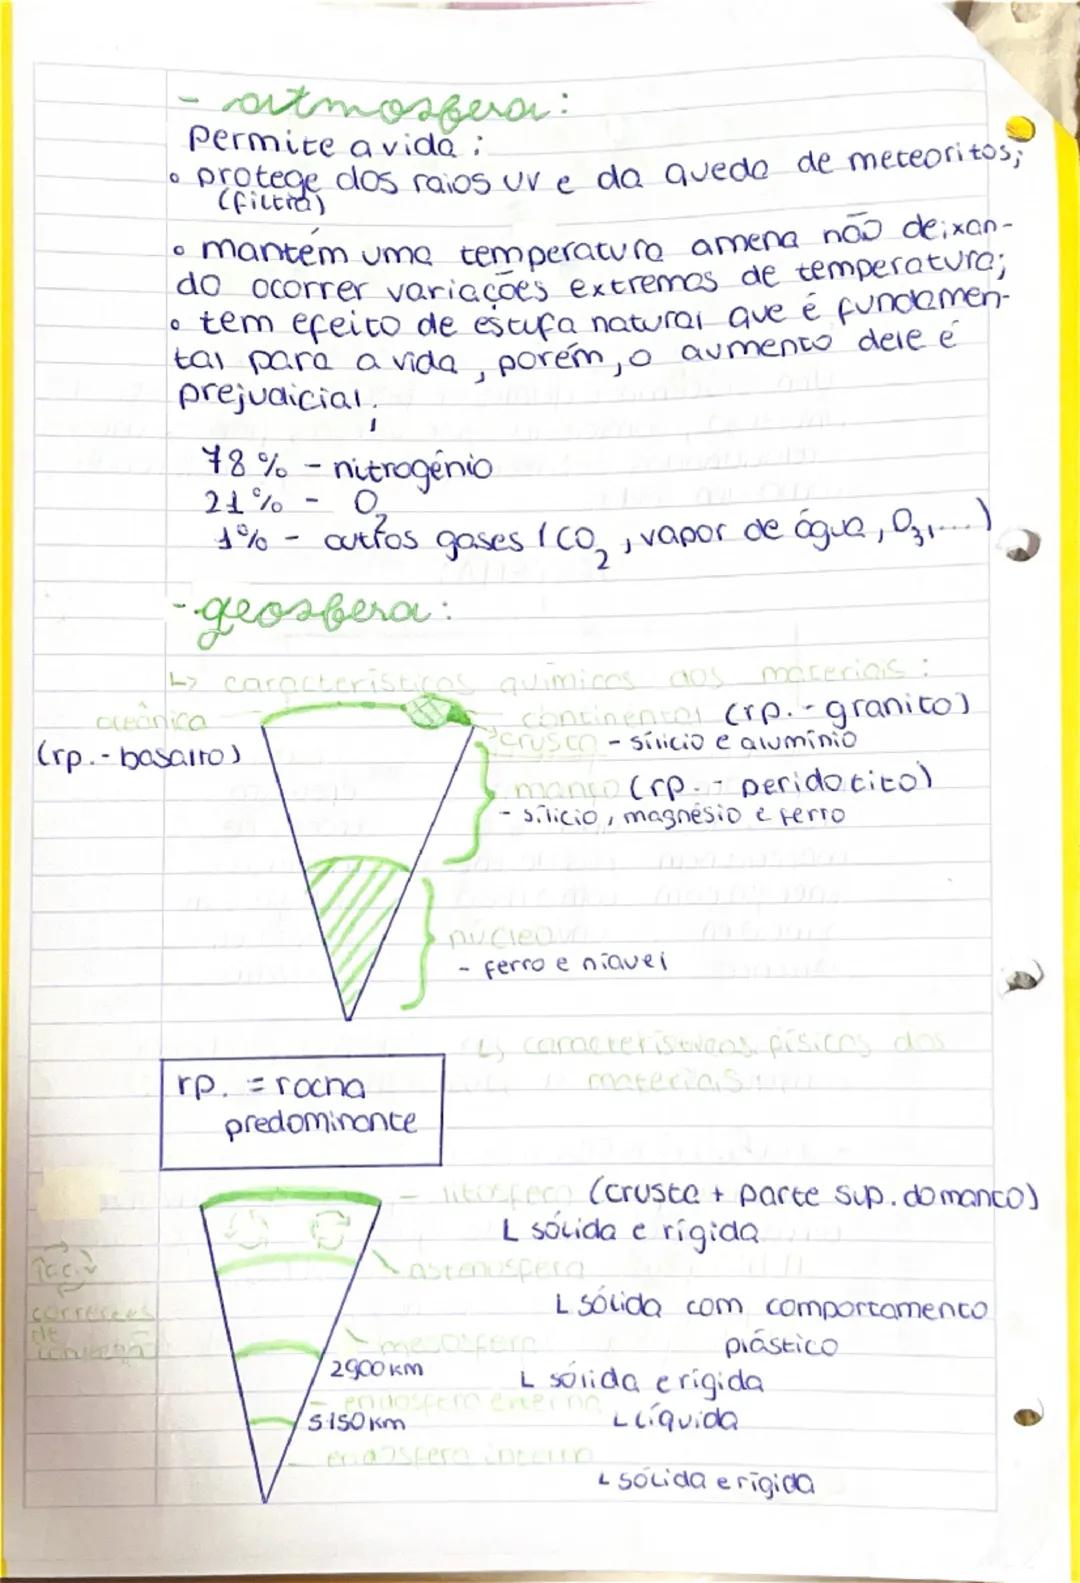 - atmosfera:
Permite a vida:
• protege dos raios UV e da queda de meteoritos;
(filtra)
• mantém uma temperatura amena não deixan-
do ocorrer variações extremas de temperatura;
• tem efeito de estufa natural que é fundamen-
tal para a vida, porém, o aumento dele é
prejudicial.
78% - nitrogénio
21% - O2
1% - outros gases (CO2, vapor de água, O3,....)
- geosfera:
↳ características químicas dos materiais:
oceânica
(rp.- basalto)
continental (rp.- granito)
crusta - silício e alumínio
manto (rp.- peridotito)
- silício, magnésio e ferro
núcleo
- ferro e níquel
↳ características físicas dos
materiais
rp. = rocha
predominante
- litosfera (crusta + parte sup. do manto)
L sólida e rígida
astenosfera
L sólida com comportamento
plástico
c.c.
correntes
de
convecção
mesosfera
2900 km
L sólida e rígida
- endosfera externa
5150 km
L líquida
endosfera interna
L sólida e rígida